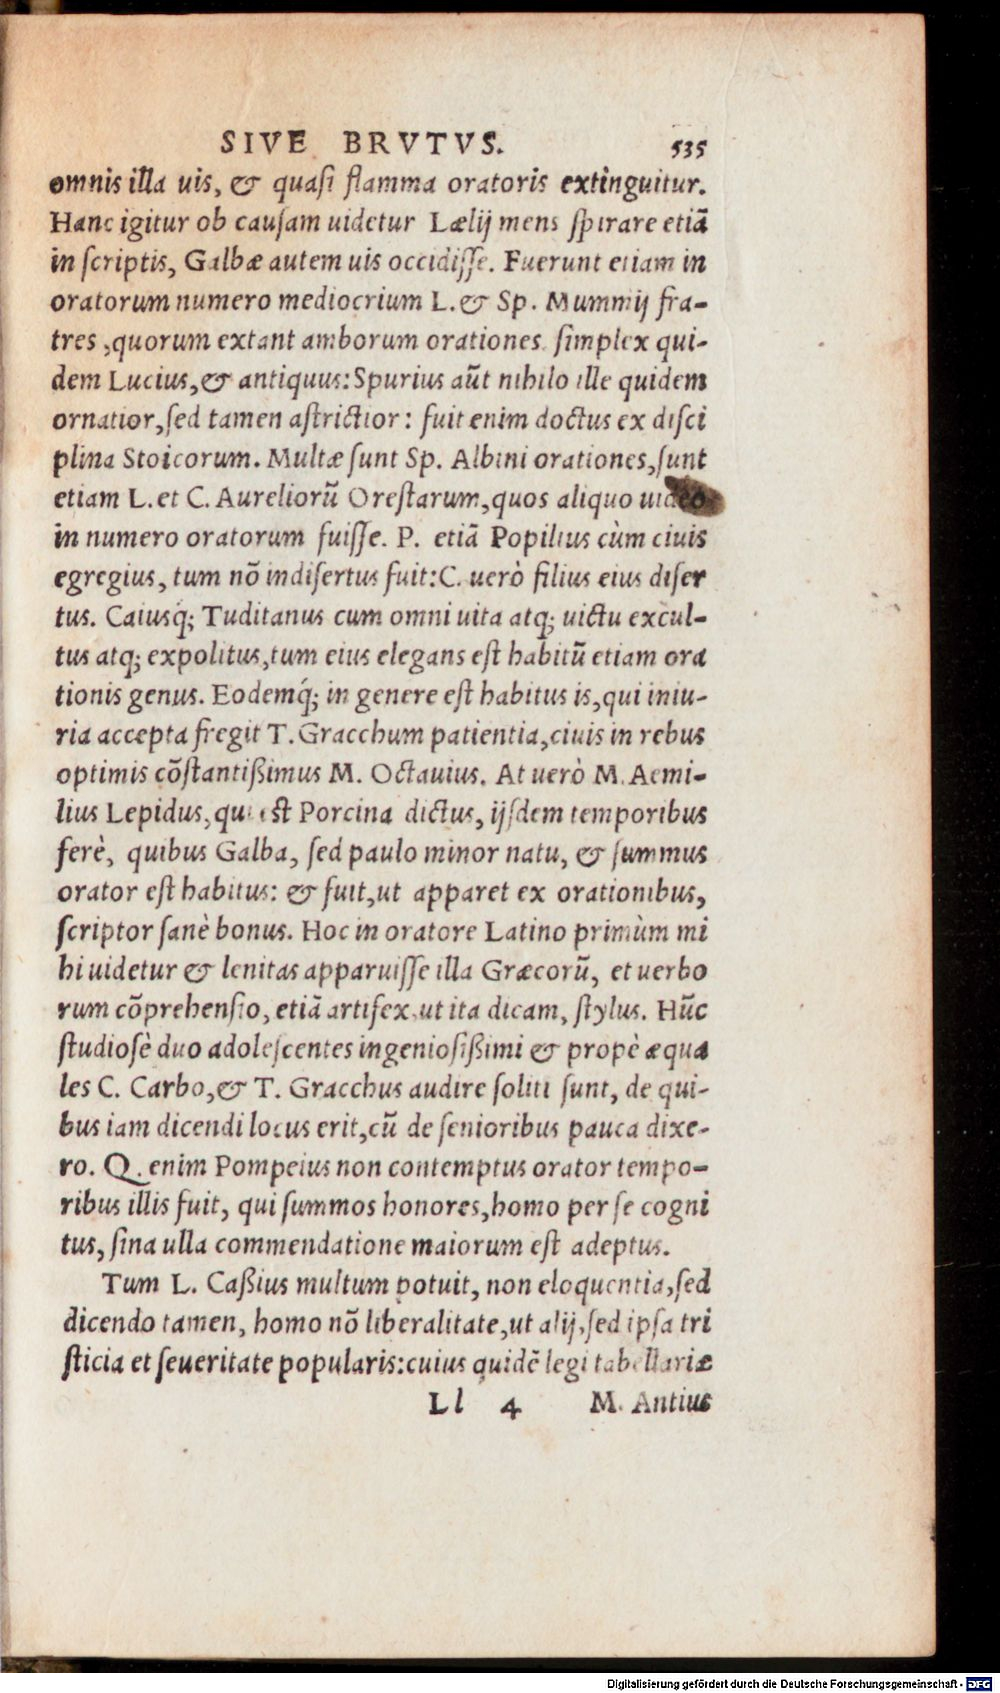 SIVE BRVTVS. 535
omnis illa uis, & quasi flamma oratoris extinguitur.
Hanc igitur ob causam uidetur Lælij mens spirare etiã
in scriptis, Galbæ autem uis occidisse. Fuerunt etiam in
oratorum numero mediocrium L. & Sp. Mummij fra-
tres, quorum extant amborum orationes. simplex qui-
dem Lucius, & antiquus: Spurius aũt nihilo ille quidem
ornatior, sed tamen astrictior: fuit enim doctus ex disci
plina Stoicorum. Multæ sunt Sp. Albini orationes, sunt
etiam L. et C. Aureliorũ Orestarum, quos aliquo uideo
in numero oratorum fuisse. P. etiã Popilius cùm ciuis
egregius, tum nõ indisertus fuit: C. uerò filius eius diser
tus. Caiusq; Tuditanus cum omni uita atq; uictu excul-
tus atq; expolitus, tum eius elegans est habitũ etiam ora
tionis genus. Eodemq́; in genere est habitus is, qui iniu-
ria accepta fregit T. Gracchum patientia, ciuis in rebus
optimis cõstantißimus M. Octauius. At uerò M. Aemi-
lius Lepidus, qui est Porcina dictus, ijsdem temporibus
ferè, quibus Galba, sed paulo minor natu, & summus
orator est habitus: & fuit, ut apparet ex orationibus,
scriptor sanè bonus. Hoc in oratore Latino primùm mi
hi uidetur & lenitas apparuisse illa Græcorũ, et uerbo
rum cõprehensio, etiã artifex, ut ita dicam, stylus. Hũc
studiosè duo adolescentes ingeniosißimi & propè æqua
les C. Carbo, & T. Gracchus audire soliti sunt, de qui-
bus iam dicendi locus erit, cũ de senioribus pauca dixe-
ro. Q. enim Pompeius non contemptus orator tempo-
ribus illis fuit, qui summos honores, homo per se cogni
tus, sina ulla commendatione maiorum est adeptus.
Tum L. Caßius multum potuit, non eloquentia, sed
dicendo tamen, homo nõ liberalitate, ut alij, sed ipsa tri
sticia et seueritate popularis: cuius quidẽ legi tabellariæ
Ll 4 M. Antius
Digitalisierung gefördert durch die Deutsche Forschungsgemeinschaft - DFG